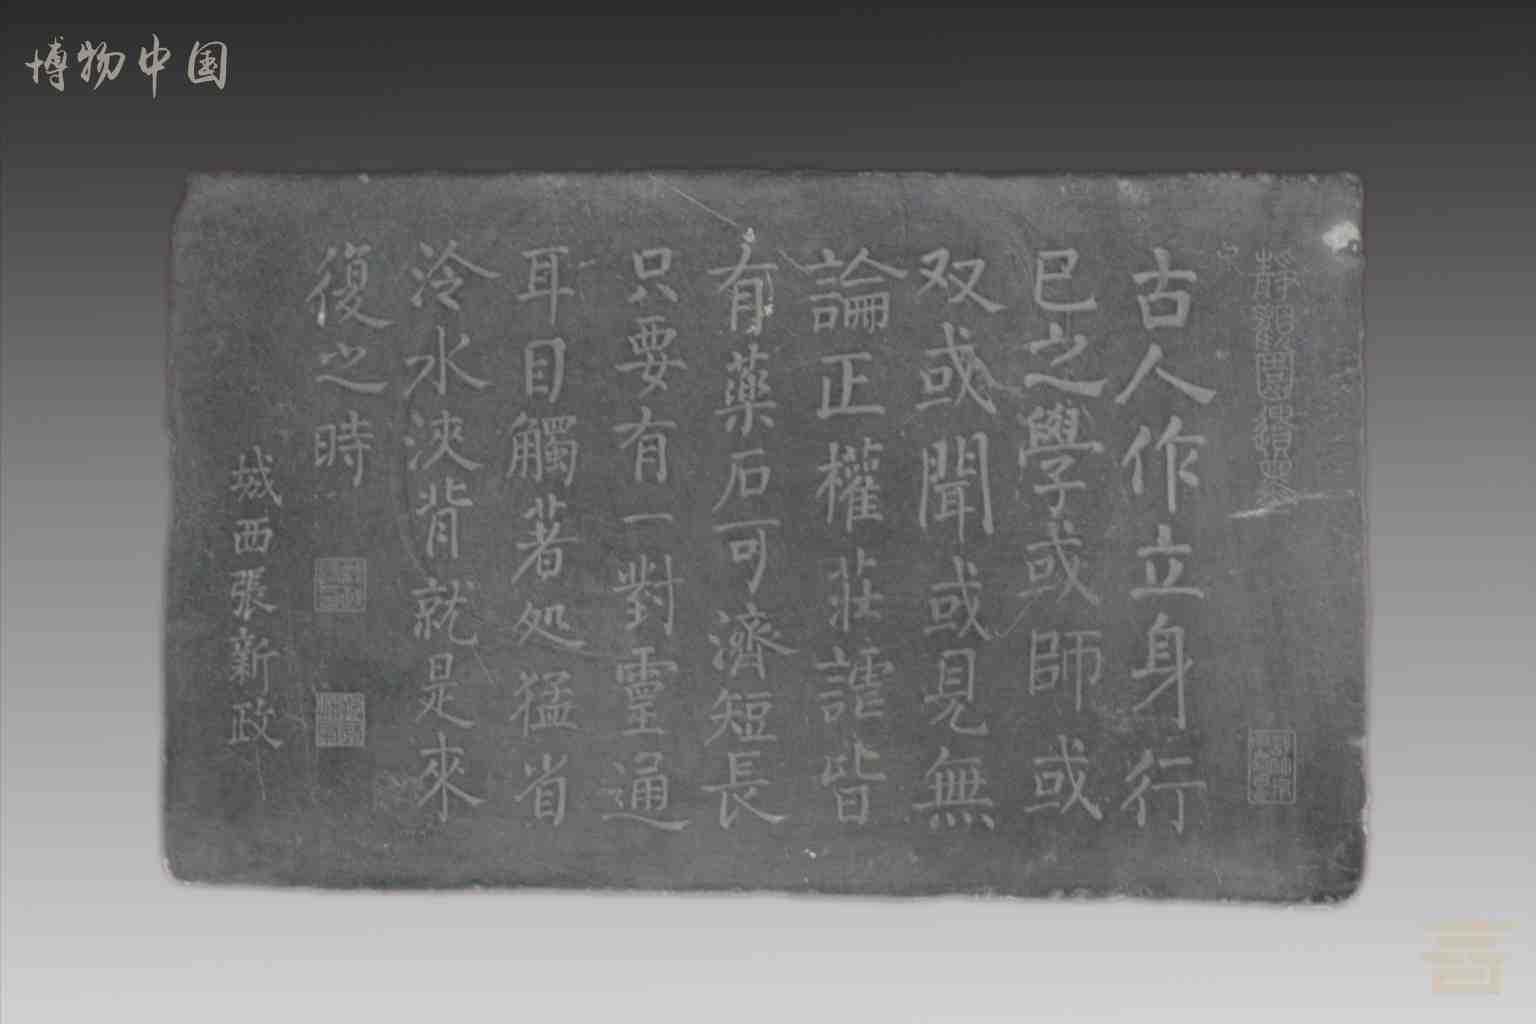 博物中国
古人作立身行
已之學或師或
双或聞或見無
論正權莊謔皆
有藥石可濟短長
只要有一對靈通
耳目觸著処猛省
泠水浹背就是來
復之時
城西張新政